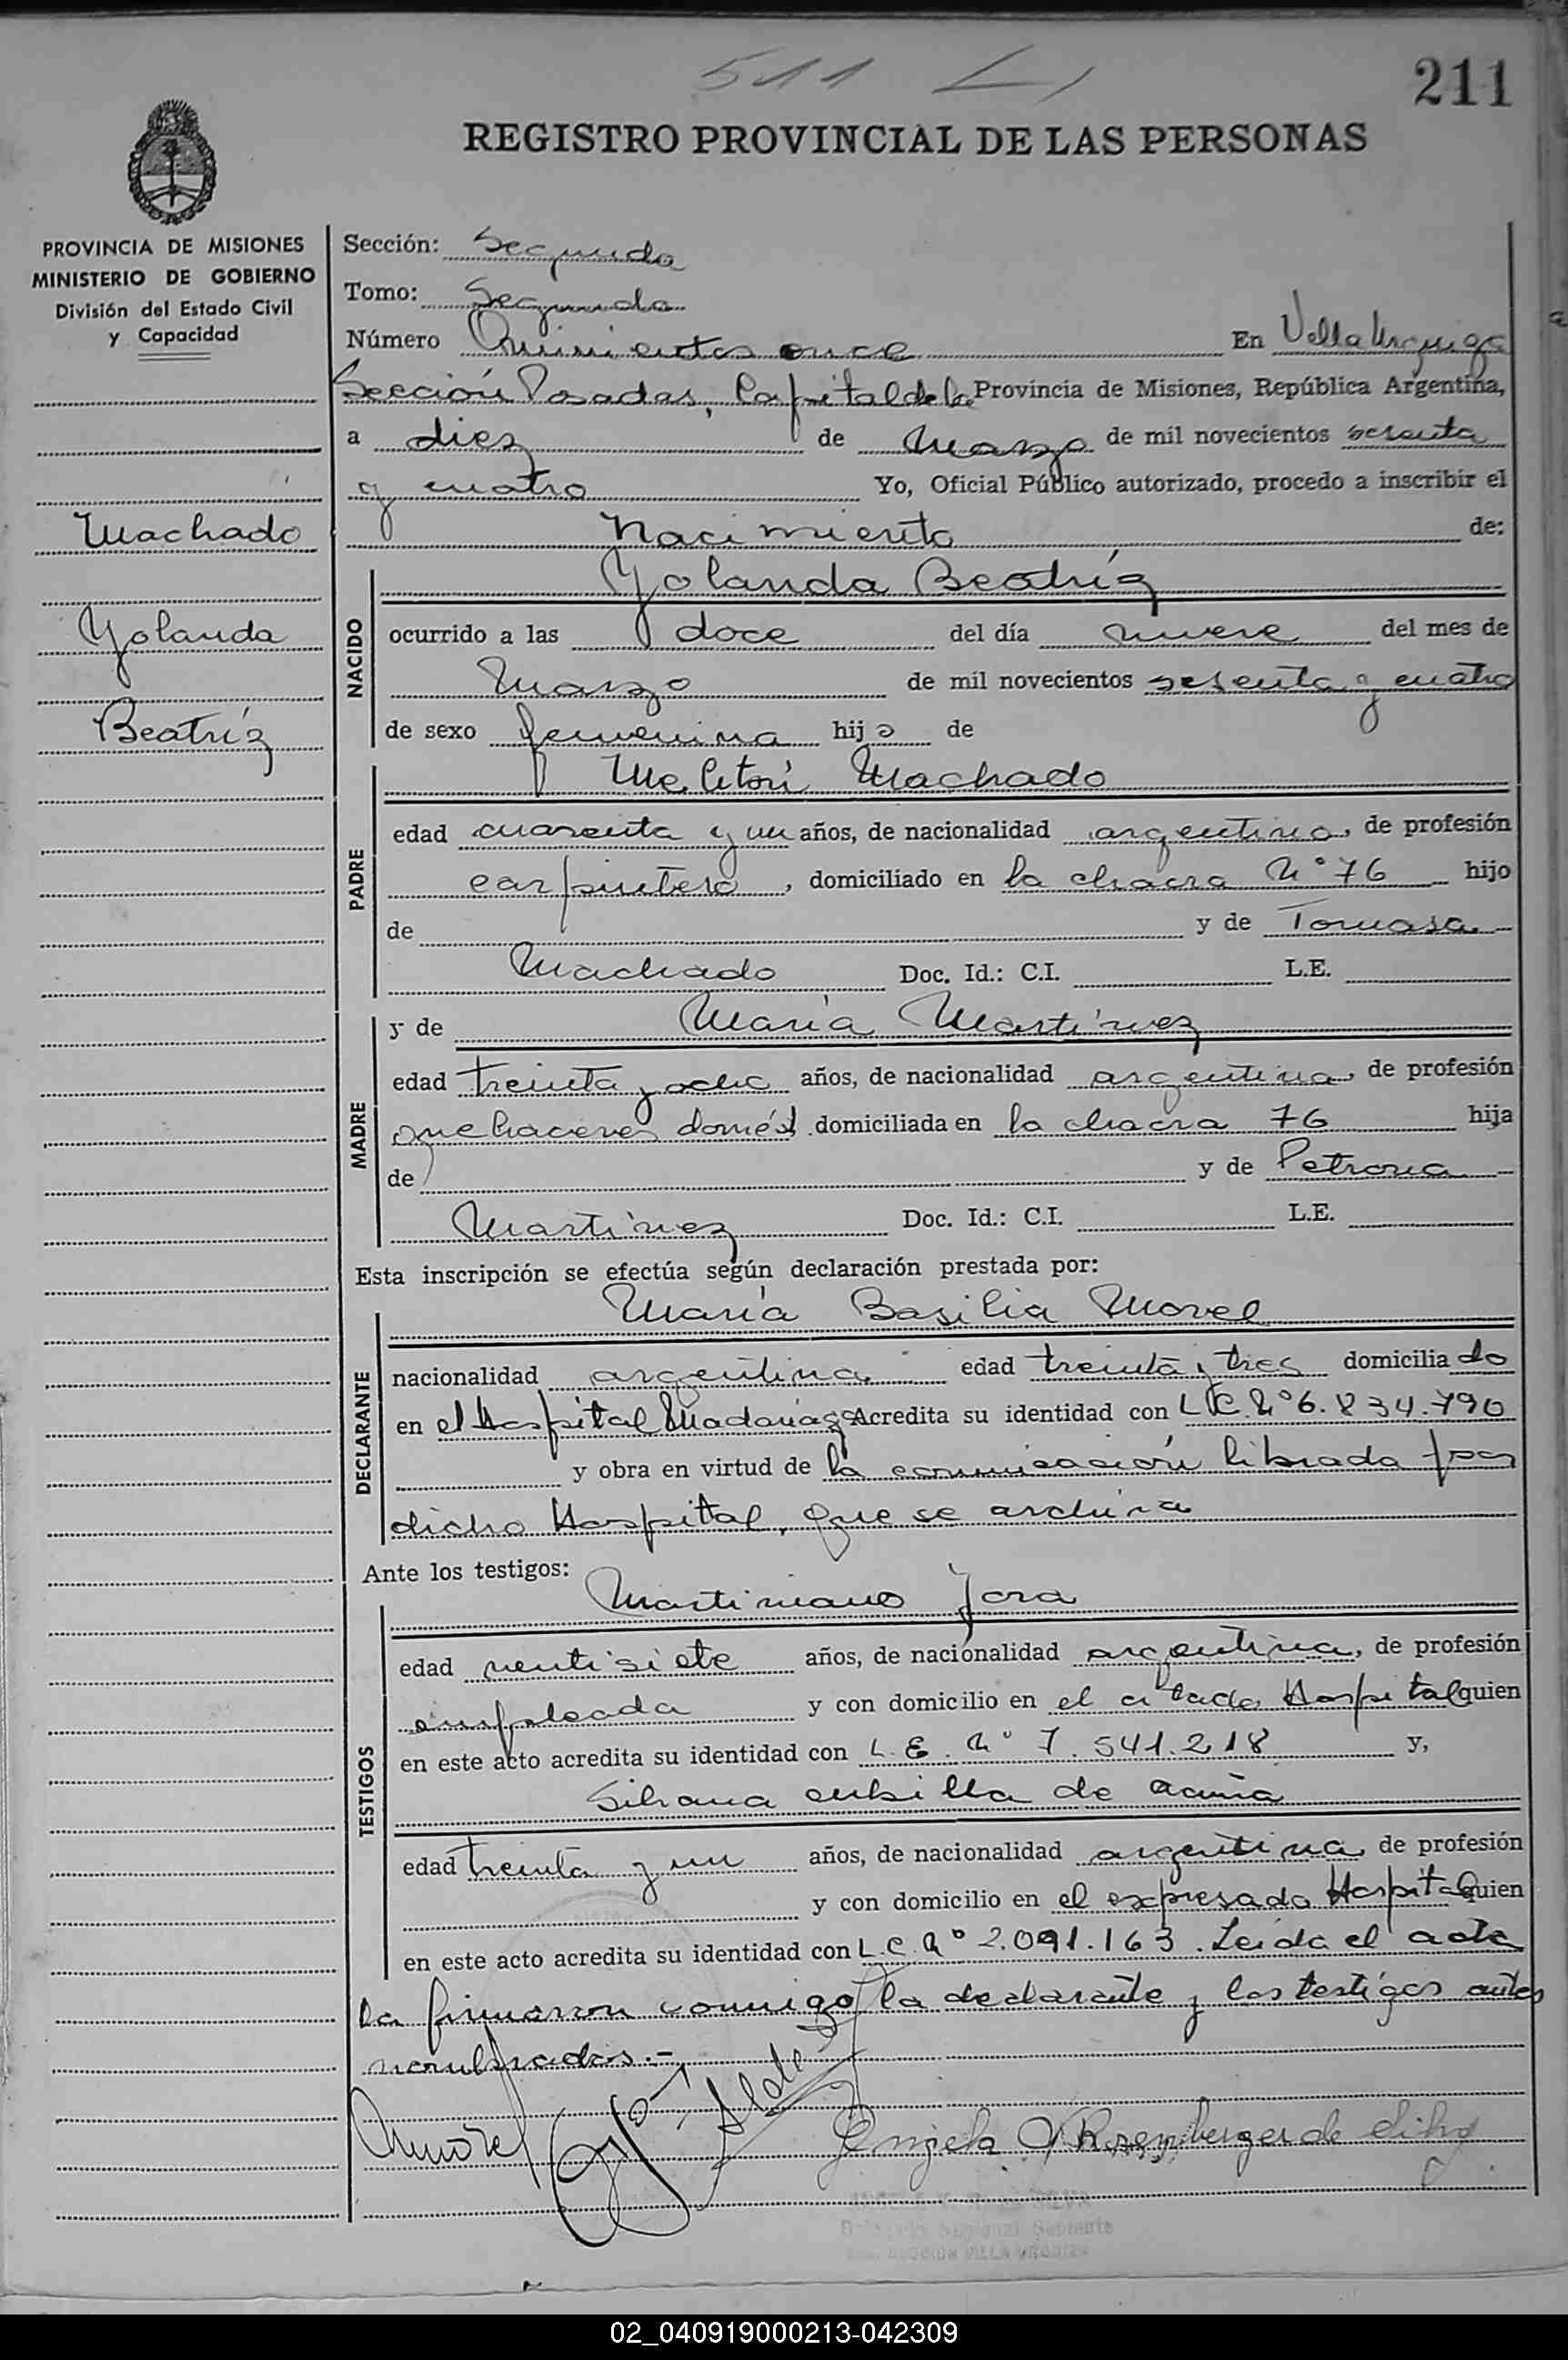 511
211
REGISTRO PROVINCIAL DE LAS PERSONAS
PROVINCIA DE MISIONES
MINISTERIO DE GOBIERNO
División del Estado Civil
y Capacidad
Machado
Yolanda
Beatríz
Sección: Segunda
Tomo: Segundo
Número Quinientos once En Villa Urquiza
Sección Posadas, Capital de la Provincia de Misiones, República Argentina,
a diez de Marzo de mil novecientos sesenta
y cuatro Yo, Oficial Público autorizado, procedo a inscribir el
Nacimiento de:
NACIDO
Yolanda Beatríz
ocurrido a las doce del día nueve del mes de
Marzo de mil novecientos sesenta y cuatro
de sexo femenina hija de
PADRE
Melitón Machado
edad cuarenta y un años, de nacionalidad argentina, de profesión
carpintero, domiciliado en la chacra N° 76 hijo
de y de Tomasa
Machado Doc. Id.: C.I. L.E.
MADRE
y de María Martínez
edad treinta y ocho años, de nacionalidad argentina, de profesión
quehaceres domést. domiciliada en la chacra 76 hija
de y de Petrona
Martínez Doc. Id.: C.I. L.E.
Esta inscripción se efectúa según declaración prestada por:
DECLARANTE
María Basilia Morel
nacionalidad argentina edad treinta y tres domiciliado
en el Hospital Madariaga Acredita su identidad con L.C. N° 6.834.790
y obra en virtud de la comunicación librada por
dicho Hospital, que se archiva
Ante los testigos:
TESTIGOS
Martiniano Jara
edad ventisiete años, de nacionalidad argentina, de profesión
empleada y con domicilio en el citado Hospital quien
en este acto acredita su identidad con L.E. N° 7.541.218 y,
Silvana cubilla de acuña
edad treinta y un años, de nacionalidad argentina, de profesión
y con domicilio en el expresado Hospital quien
en este acto acredita su identidad con L.C. N° 2.091.163. Leída el acta
la firmaron conmigo la declarante y los testigos antes
nombrados.-
02_040919000213-042309